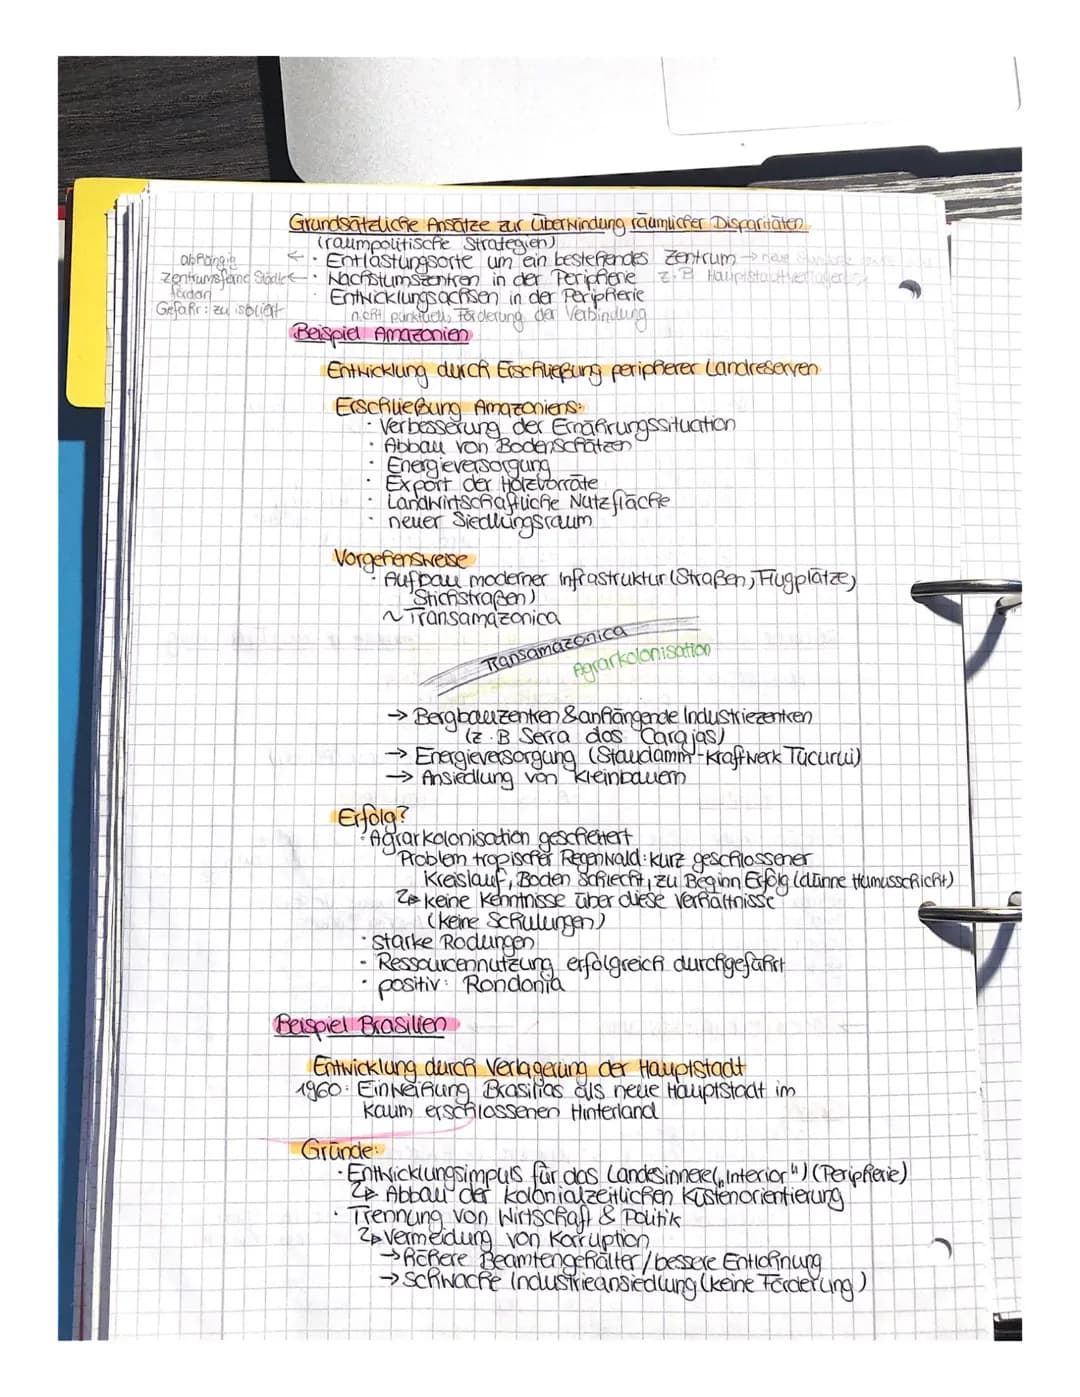 Grundsätzliche Ansätze zur Überwindung räumlicher Disparitäten
(raumpolitische Strategien)
abhängig ← · Entlastungsorte um ein bestehendes Zentrum → neue
zentrumsferne Städte ← · Wachstumszentren in der Peripherie z.B Hauptstadtverlagerung
fördern · Entwicklungsachsen in der Peripherie
Gefahr: zu isoliert nicht punktuell, Förderung der Verbindung
Beispiel Amazonien
Entwicklung durch Erschließung peripherer Landreserven
Erschließung Amazoniens:
· Verbesserung der Ernährungssituation
· Abbau von Bodenschätzen
· Energieversorgung
· Export der Holzvorräte
· Landwirtschaftliche Nutzfläche
· neuer Siedlungsraum
Vorgehensweise
· Aufbau moderner Infrastruktur (Straßen, Flugplätze,
Stichstraßen)
~ Transamazonica
Transamazonica
Agrarkolonisation
→ Bergbauzentren & anhängende Industriezentren
(z.B Serra dos Carajas)
→ Energieversorgung (Staudamm-Kraftwerk Tucurui)
→ Ansiedlung von Kleinbauern
Erfolg?
· Agrarkolonisation gescheitert
Problem tropischer Regenwald: kurz geschlossener
Kreislauf, Boden schlecht, zu Beginn Erfolg (dünne Humusschicht)
↳ keine Kenntnisse über diese Verhältnisse
(keine Schulungen)
· starke Rodungen
· Ressourcennutzung erfolgreich durchgeführt
· positiv: Rondonia
Beispiel Brasilien
Entwicklung durch Verlagerung der Hauptstadt
1960: Einweihung Brasilias als neue Hauptstadt im
kaum erschlossenen Hinterland
Gründe:
· Entwicklungsimpuls für das Landesinnere („Interior") (Peripherie)
↳ Abbau der kolonialzeitlichen Küstenorientierung
· Trennung von Wirtschaft & Politik
↳ Vermeidung von Korruption
→ höhere Beamtengehälter / bessere Entlohnung
→ schwache Industrieansiedlung (keine Förderung)